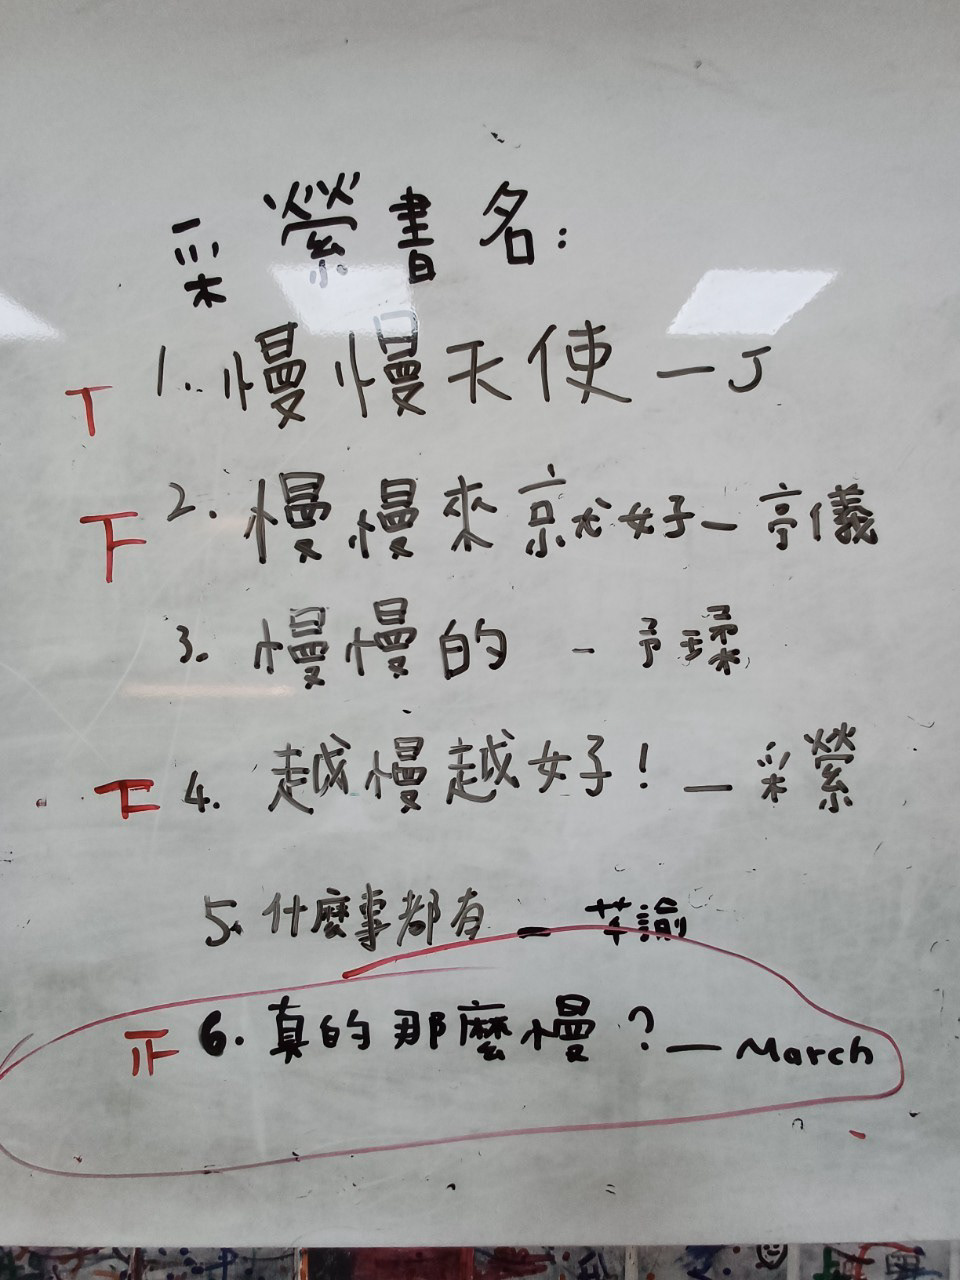 彩縈書名:
1. 慢慢天使 — J
2. 慢慢來就好 — 亭儀
3. 慢慢的 - 予瑈
4. 越慢越好! — 彩縈
5. 什麼事都有 — 芊諭
6. 真的那麼慢? — March